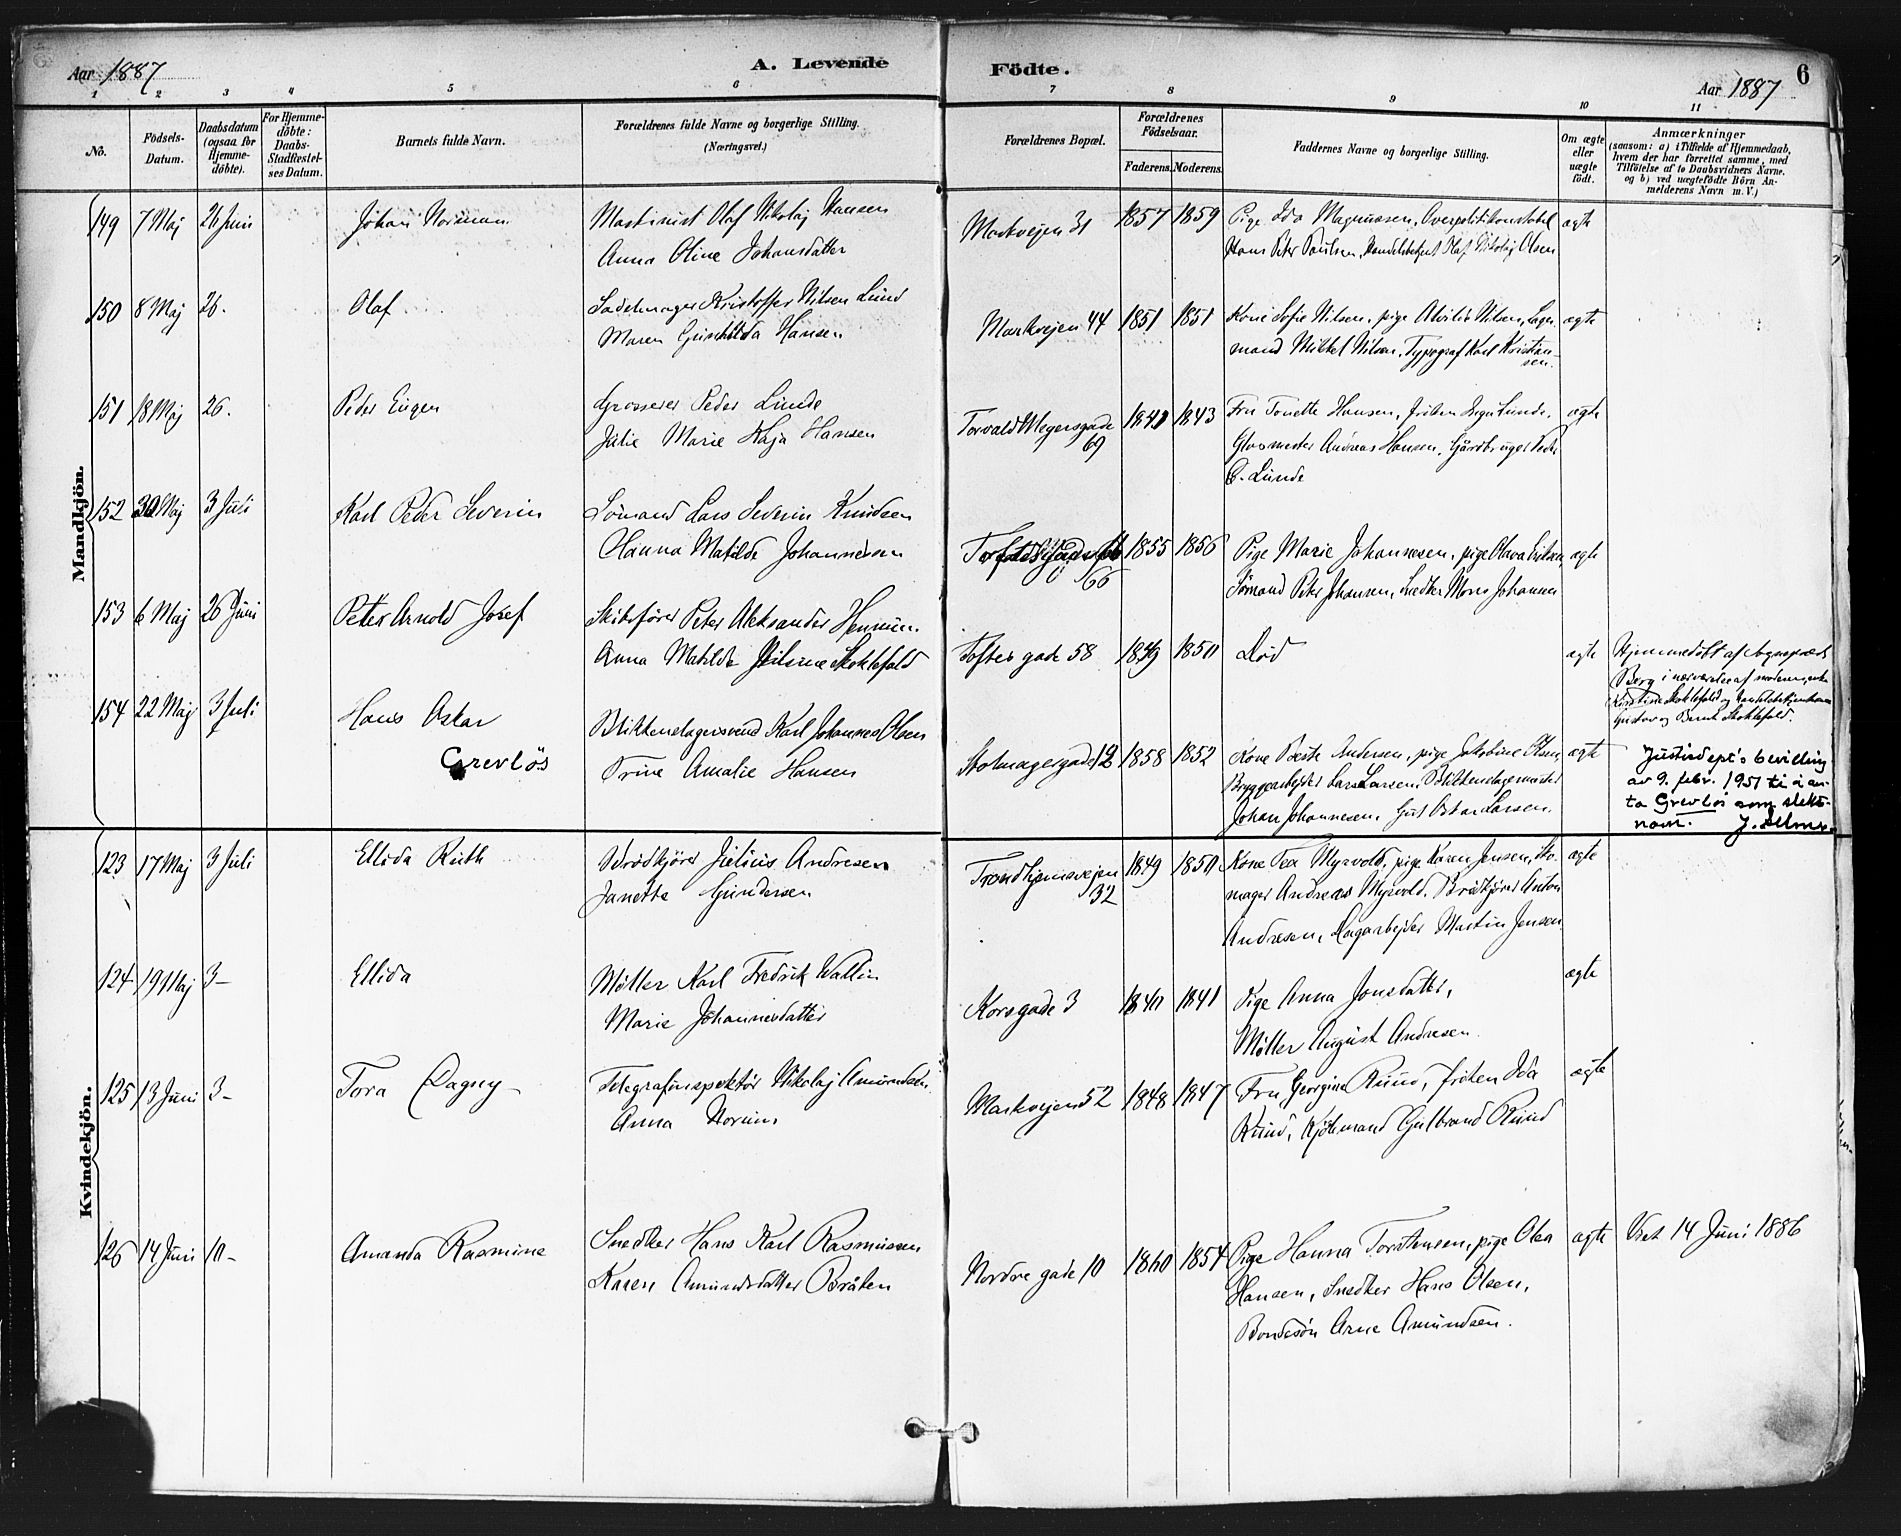 Aar 1887
A. Levende Födte.
Aar 1887
6
1 2 3 4 5 6 7 8 9 10 11
No.
Födsels-Datum.
Daabsdatum (ogsaa for Hjemme-döbte).
For Hjemme-döbte: Daabs-Stadfæstel-ses Datum.
Barnets fulde Navn.
Forældrenes fulde Navne og borgerlige Stilling.
(Næringsvei.)
Forældrenes Bopæl.
Forældrenes Födselsaar.
Faderens. Moderens.
Faddernes Navne og borgerlige Stilling.
Om ægte eller uægte födt.
Anmærkninger
(saasom: a) i Tilfælde af Hjemmedaab, hvem der har forrettet samme, med Tilföielse af to Daabsvidners Navne, og b) ved uægtefödte Börn Anmelderens Navn m. V.)
Mandkjön.
149 7 Maj 26 Juni Johan Norman Maskinist Olaf Nikolaj Hansen
Anna Oline Johansdatter
Markvejen 31 1857 1859 Pige Ida Magnussen, Overpolitikonstabel
Hans Peter Paulsen, Handelsbetjent Olaf Nikolaj Olsen
ægte
150 8 Maj 26. Olaf Sadelmager Kristoffer Nilsen Lund
Maren Gunhilda Hansen
Markvejen 44 1851 1851 Kone Sofie Nilsen, pige Alvilde Nilsen, Lager
mand Mikkel Nilsen, Typograf Karl Kristian-
sen.
ægte
151 18 Maj 26. Peder Eugen Grosserer Peder Lunde
Julie Marie Kaja Hansen
Torvald Meyersgade
69
1841 1843 Fru Tonette Hansen, Frøken Inga Lunde,
Glasmester Andreas Hansen, Gårdbruger Peder
C. Lunde
ægte
152 30 Maj 3 Juli Karl Peder Severin Sömand Lars Severin Knudsen
Hanna Matilde Johannesen
66
1855 1856 Pige Marie Johannesen, pige Olava Eriksen,
Sömand Peter Johansen, Snedker Mons Johannes
ægte
153 6 Maj 26 Juni Peter Arnold Josef Skibsförer Peter Aleksander Hennum.
Anna Matilde Stoklefald
Toftes gade 58 1849 1850 Död
ægte
Hjemmedöbt af sognepræst
Berg i nærværelse af moderen, enke
Kristine Stoklefald og
Gustav og Bernt Stoklefald.
154 22 Maj 3 Juli Hans Oskar
Grevlös
Blikkenslagersvend Karl Johannes Olsen
Trine Amalie Hansen
Skomagergade 12 1858 1852 Kone Beate Andersen, pige Jakobine Olsen,
Bryggearbejder Lars Larsen, Blikkenslagermester
Johan Johannesen, Gut Oskar Larsen.
ægte
Justisdept's bevilling
av 9. febr. 1951 til å an-
ta Grevlös som slekts-
navn.
Kvindekjön.
123 17 Maj 3 Juli Ellida Ruth Brödkjörer Julius Andresen
Janette Gundersen
Trondhjemsvejen
32
1849 1850 Kone Tea Myrvold, pige Karen Jensen, Sko-
mager Andreas Myrvold, Brödkjörer Anton
Andresen, Dagarbejder Martin Jensen
ægte
124 19 Maj 3- Ellida Møller Karl Fredrik Wallin
Marie Johannesdatter
Korsgade 3 1840 1841 Pige Anna Jonsdatter,
Møller August Andresen.
ægte
125 13 Juni 3- Tora Dagny - Telegrafinspektör Nikolaj Amundsen
Anna Norum
Markvejen 52 1848 1847 Fru Georgine Ruud, fröken Ida
Ruud, Kjöbmand Gulbrand Ruud
ægte
126 14 Juni 10- Amanda Rasmine Snedker Hans Karl Rasmussen
Karen Amundsdatter Bråten
Nordre gade 10 1860 1854 Pige Hanna Torstensen, pige Olea
Hansen, Snedker Hans Olsen,
Bondesön Arne Amundsen.
ægte
Viet 14 Juni 1886